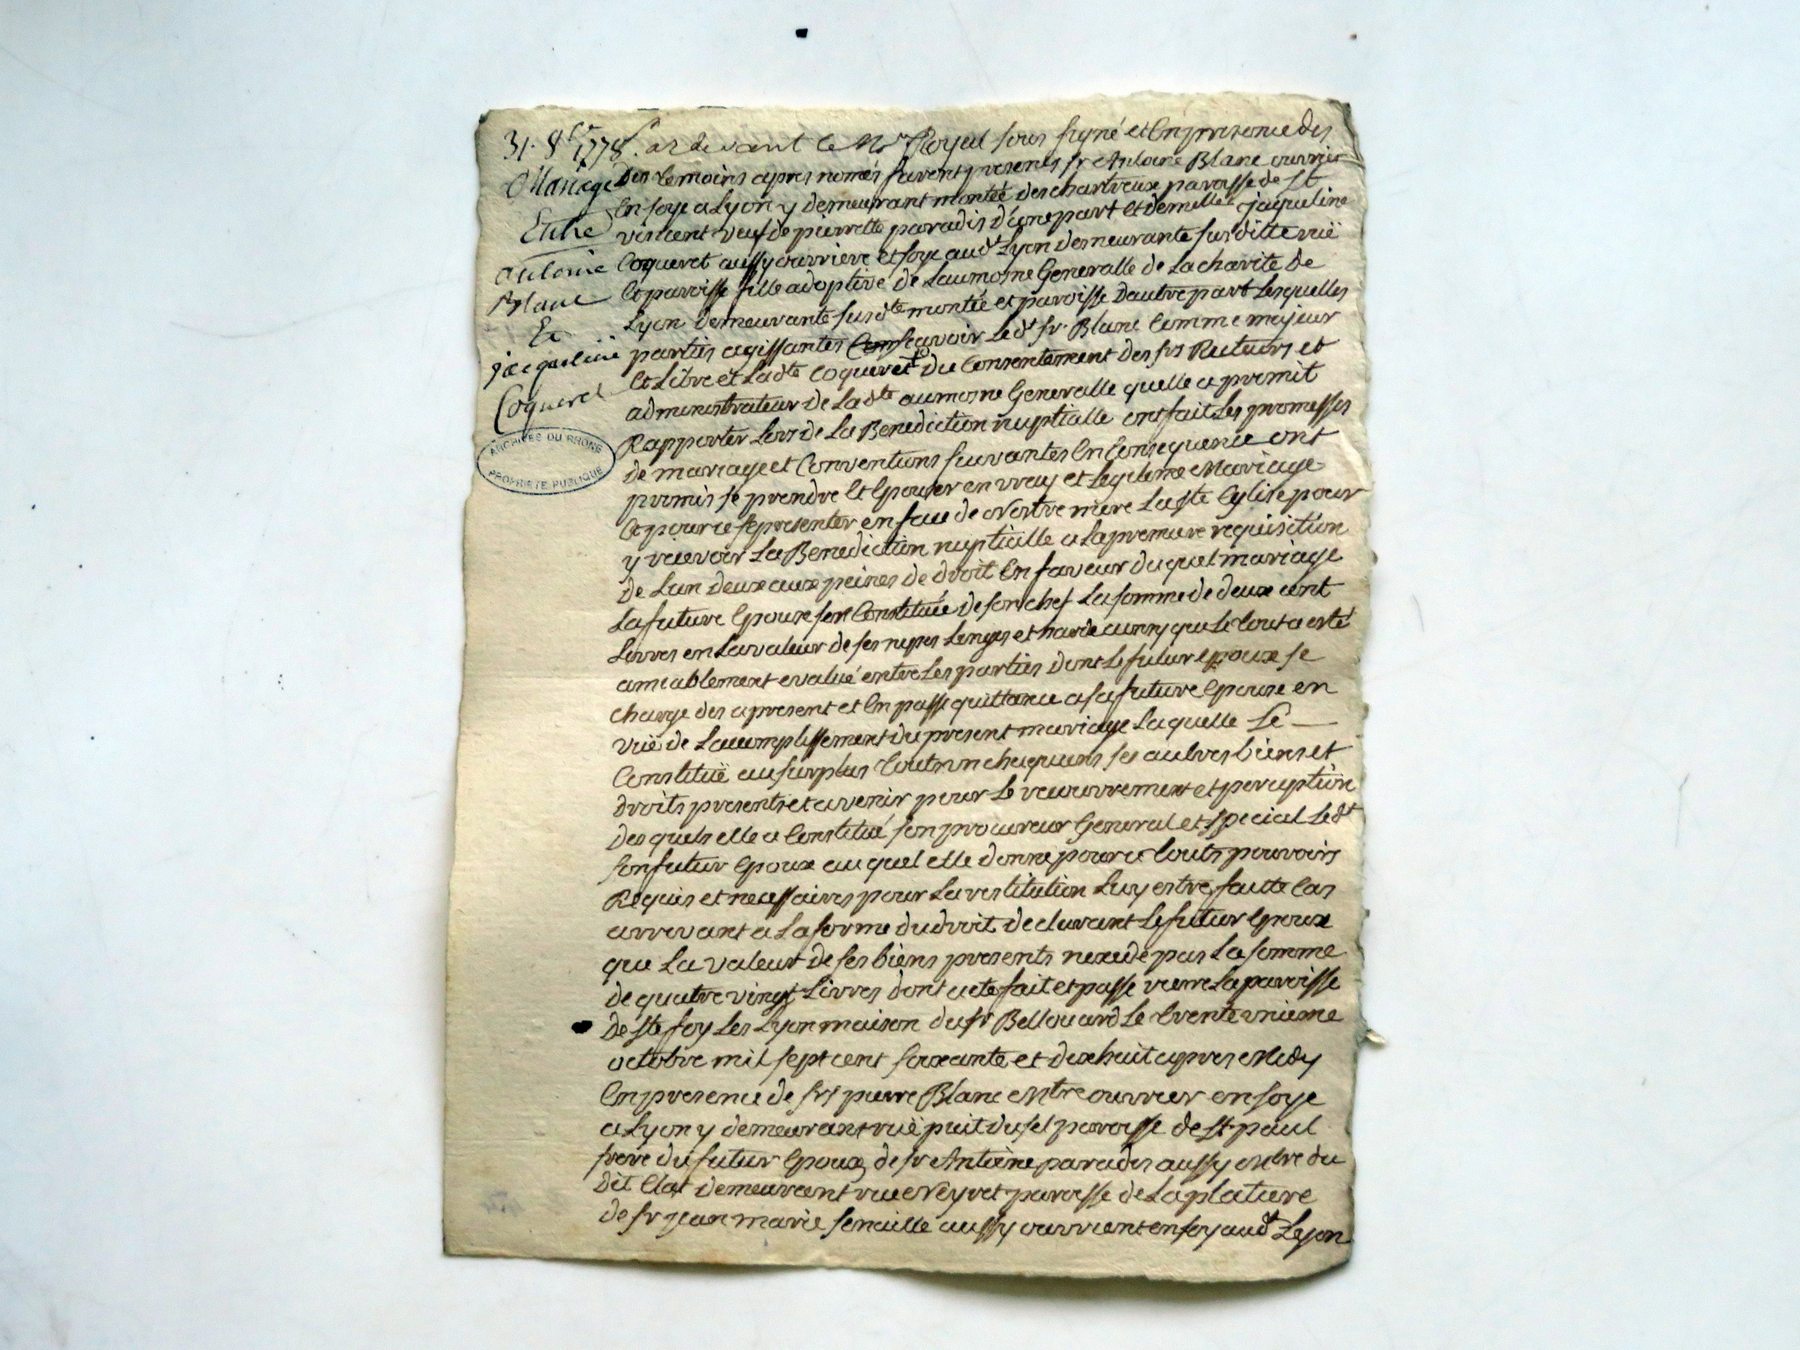 31. 8bre 1778.
Mariage
Entre
antoine
Blanc
Et
jacqueline
Coqueret
ARCHIVES DU RHONE
PROPRIÉTÉ PUBLIQUE
Par devant le Nre Royal sous signé et En presence des
Des temoins apres només furent presents sr Antoine Blanc ouvrier
En soye a Lyon y demeurant montée des chartreux paroisse de St
vincent veuf de pierrette paradis d'une part et demelle jaqueline
Coqueret aussy ouvriere et soye aud. Lyon demeurante susditte ruë
Et paroisse fille adoptive de Laumosne Generalle de La charité de
Lyon demeurante susdte montée et paroisse Dautre part Lesquelles
parties agissantes scavoir Ledt sr Blanc Comme majeur
Et Libre et Ladte Coqueret du Consentement des srs Recteurs et
administrateur de Ladte aumosne Generalle quelle a promit
Rapporter Lors de La Benediction nuptialle ont fait Les promesses
de mariage et Conventions suivantes En Consequence ont
promis se prendre Et Epouser en vray et Legitime Mariage
Et pour ce se presenter en face de Nostre mere Laste Eglise pour
y recevoir La Benediction nuptialle a La premiere requisition
De Lun deux aux peines de droit En faveur duquel mariage
La future Epouse sest Constituée de son chef La somme de deux cent
Livres en La valeur de ses nipes Linges et harde aunsy que Le tout a esté
amiablement evalué entre Les parties dont Le futur epoux se
charge des a present et En passe quittance a sa future Epouse en
vuë de Laccomplissement du present mariage Laquelle Se
Constituë au surplus toutun chaquuns ses autres biens et
droits presents et avenir pour Le recouvrement et perception
Desquels elle a Constitué son procureur General et special Ledt
son futur Epoux auquel elle donne pour ce touts pouvoirs
Requis et necessaires pour La restitution Luy estre faitte Cas
arrivant a La forme du droit declarant Le futur Epoux
que La valeur de ses biens presents nexede pas La somme
de quatre vingt Livres dont acte fait et passe vierre La paroisse
De Ste foy Les Lyon maison du sr Bellouard Le trente unieme
octobre mil sept cent soixante et dixhuit apres Midy
En presence de srs pierre Blanc Mtre ouvrier en soye
a Lyon y demeurant ruë puit du sel paroisse de St paul
frere du futur Epoux, de sr Antoine paradis aussy Mtre du
dit Etat demeurant rue Neyret paroisse de La platiere
de sr jean marie aussy ouvrier en soy aud. Lyon